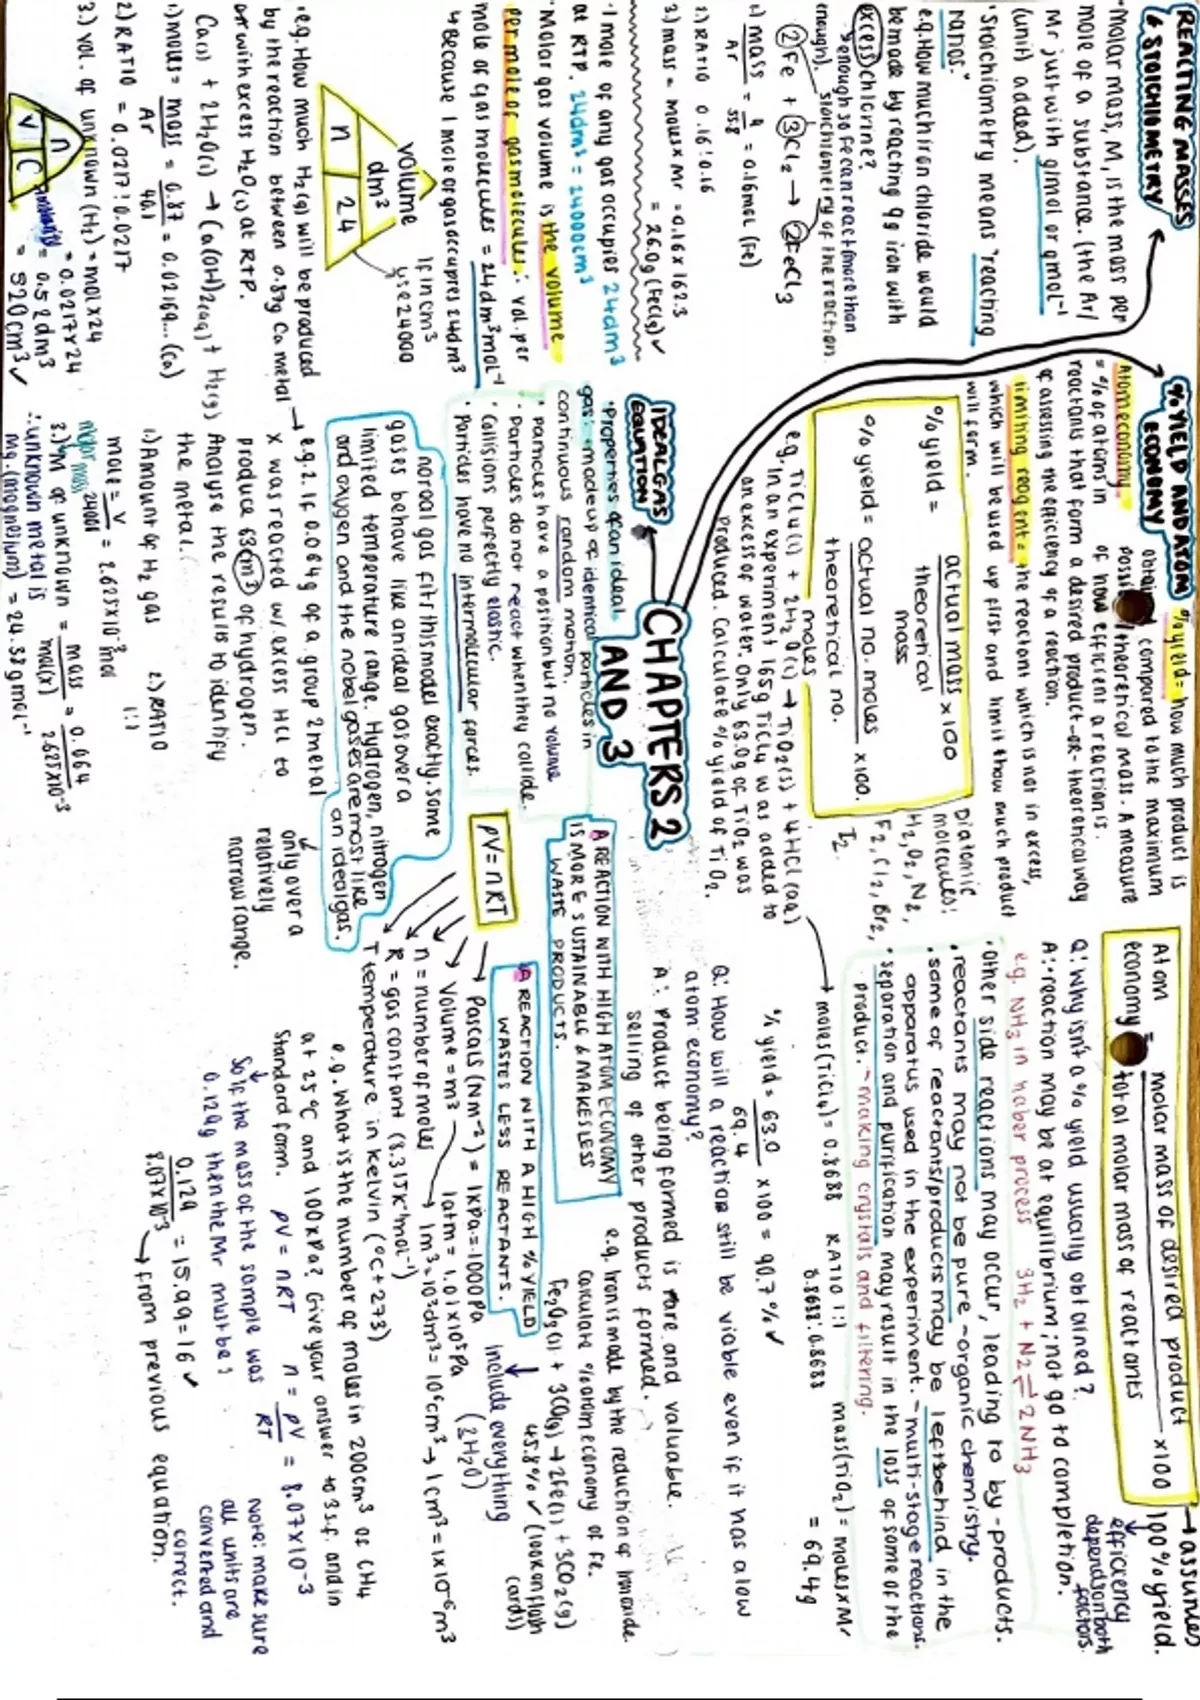 REACTING MASSES
& STOICHIOMETRY
• molar mass, M, is the mass per
mole of a substance. (the Ar/
Mr just with g/mol or gmol⁻¹
(unit) added).
• Stoichiometry means "reacting
ratios."
e.g. How much iron chloride would
be made by reacting 9g iron with
excess chlorine?
↳ enough so Fe can react (more than
enough).
stoichiometry of the reaction.
2Fe + 3Cl₂ → 2FeCl₃
1.) mass/Ar = 9/55.8 = 0.16mol (Fe)
2.) RATIO 0.16:0.16
3.) mass = moles × Mr = 0.16 × 162.3
= 26.0g (FeCl₃) ✓
• 1 mole of any gas occupies 24dm³
at RTP. 24dm³ = 24000cm³
• Molar gas volume is the volume
per mole of gas molecules ∴ vol. per
mole of gas molecules = 24dm³mol⁻¹
↳ Because 1 mole of gas occupies 24dm³
volume
dm³
n | 24
If in cm³
use 24000
• e.g. How much H₂(g) will be produced
by the reaction between 0.87g Ca metal
with excess H₂O(l) at RTP.
Ca(s) + 2H₂O(l) → Ca(OH)₂(aq) + H₂(g)
1.) moles = mass/Ar = 0.87/40.1 = 0.02169... (Ca)
2.) RATIO = 0.0217:0.0217
3.) vol. of unknown (H₂) = mol × 24
= 0.0217 × 24
= 0.52dm³
= 520cm³ ✓
n
V | C
% YIELD AND ATOM
ECONOMY
% yield = how much product is
obtained compared to the maximum
possible theoretical mass. A measure
of how efficient a reaction is.
Atom economy
= % of atoms in
reactants that form a desired product - or - theoretical way
of assessing the efficiency of a reaction.
limiting reagent = the reactant which is not in excess,
which will be used up first and limit thow much product
will form.
% yield = actual mass × 100
theoretical
mass
% yeild = actual no. moles × 100.
theoretical no.
moles
Diatomic
molecules:
H₂, O₂, N₂,
F₂, Cl₂, Br₂,
I₂.
e.g. TiCl₄(l) + 2H₂O(l) → TiO₂(s) + 4HCl(aq)
e.g. In an experiment 165g TiCl₄ was added to
an excess of water. Only 63.0g of TiO₂ was
produced. Calculate % yield of TiO₂.
CHAPTERS 2
AND 3
IDEAL GAS
EQUATION
• Properties of an ideal
gas: - made up of identical particles in
continuous random motion.
• particles have a position but no volume
• Particles do not react when they collide.
• Collisions perfectly elastic.
• Particles have no intermolecular forces.
no real gas fits this model exactly. some
gases behave like an ideal gas over a
limited temperature range. Hydrogen, nitrogen
and oxygen and the nobel gases are most like
an ideal gas.
only over a
relatively
narrow range.
→ e.g. 2. If 0.064g of a group 2 metal
X was reacted w. excess HCl to
produce 63cm³ of hydrogen.
Analyse the results to identify
the metal.
1.) Amount of H₂ gas
mole = V/24000 = 2.625×10⁻³mol
2.) RATIO
1:1
molar mass
3.) M of unknown = mass/mol(x) = 0.064/2.625×10⁻³
∴ unknown metal is
Mg. (magnesium) = 24.38gmol⁻¹
Atom economy = molar mass of desired product × 100
total molar mass of reactants
→ assumes
100% yield.
efficiency
depends on both
factors.
Q: Why isn't a % yield usually obtained?
A: • reaction may be at equilibrium; not go to completion.
e.g. NH₃ in haber process 3H₂ + N₂ ⇌ 2NH₃
• other side reactions may occur, leading to by-products.
• reactants may not be pure - organic chemistry.
• some of reactants/products may be left behind in the
apparatus used in the experiment. - multi-stage reactions.
• separation and purification may result in the loss of some of the
product. - making crystals and filtering.
→ moles(TiCl₄) = 0.8688 RATIO 1:1
0.8688:0.8688
mass(TiO₂) = moles × Mr
= 69.4g
% yield = 63.0/69.4 × 100 = 90.7% ✓
Q: How will a reaction still be viable even if it has a low
atom economy?
A: Product being formed is rare and valuable.
selling of other products formed.
A REACTION WITH HIGH ATOM ECONOMY
IS MORE SUSTAINABLE & MAKES LESS
WASTE PRODUCTS.
A REACTION WITH A HIGH % YIELD
WASTES LESS REACTANTS.
e.g. Iron is made by the reduction of iron oxide.
calculate % atom economy of Fe.
Fe₂O₃(l) + 3CO(g) → 2Fe(l) + 3CO₂(g)
45.8% ✓ (look on flash
cards)
include everything
(2H₂O)
pV = nRT
→ Pascals (Nm⁻²) = 1kPa = 1000Pa
1atm = 1.01×10⁵Pa
Volume = m³ → 1m³ = 10³dm³ = 10⁶cm³ → 1cm³ = 1×10⁻⁶m³
n = number of moles
R = gas constant (8.31JK⁻¹mol⁻¹)
T temperature in kelvin (°C + 273)
e.g. What is the number of moles in 200cm³ of CH₄
at 25°C and 100kPa? Give your answer to 3s.f. and in
standard form. pV = nRT n = pV/RT = 8.07×10⁻³
So if the mass of the sample was
0.129g then the Mr must be?
0.129/8.07×10⁻³ = 15.99 = 16 ✓
→ from previous equation.
Note: make sure
all units are
converted and
correct.